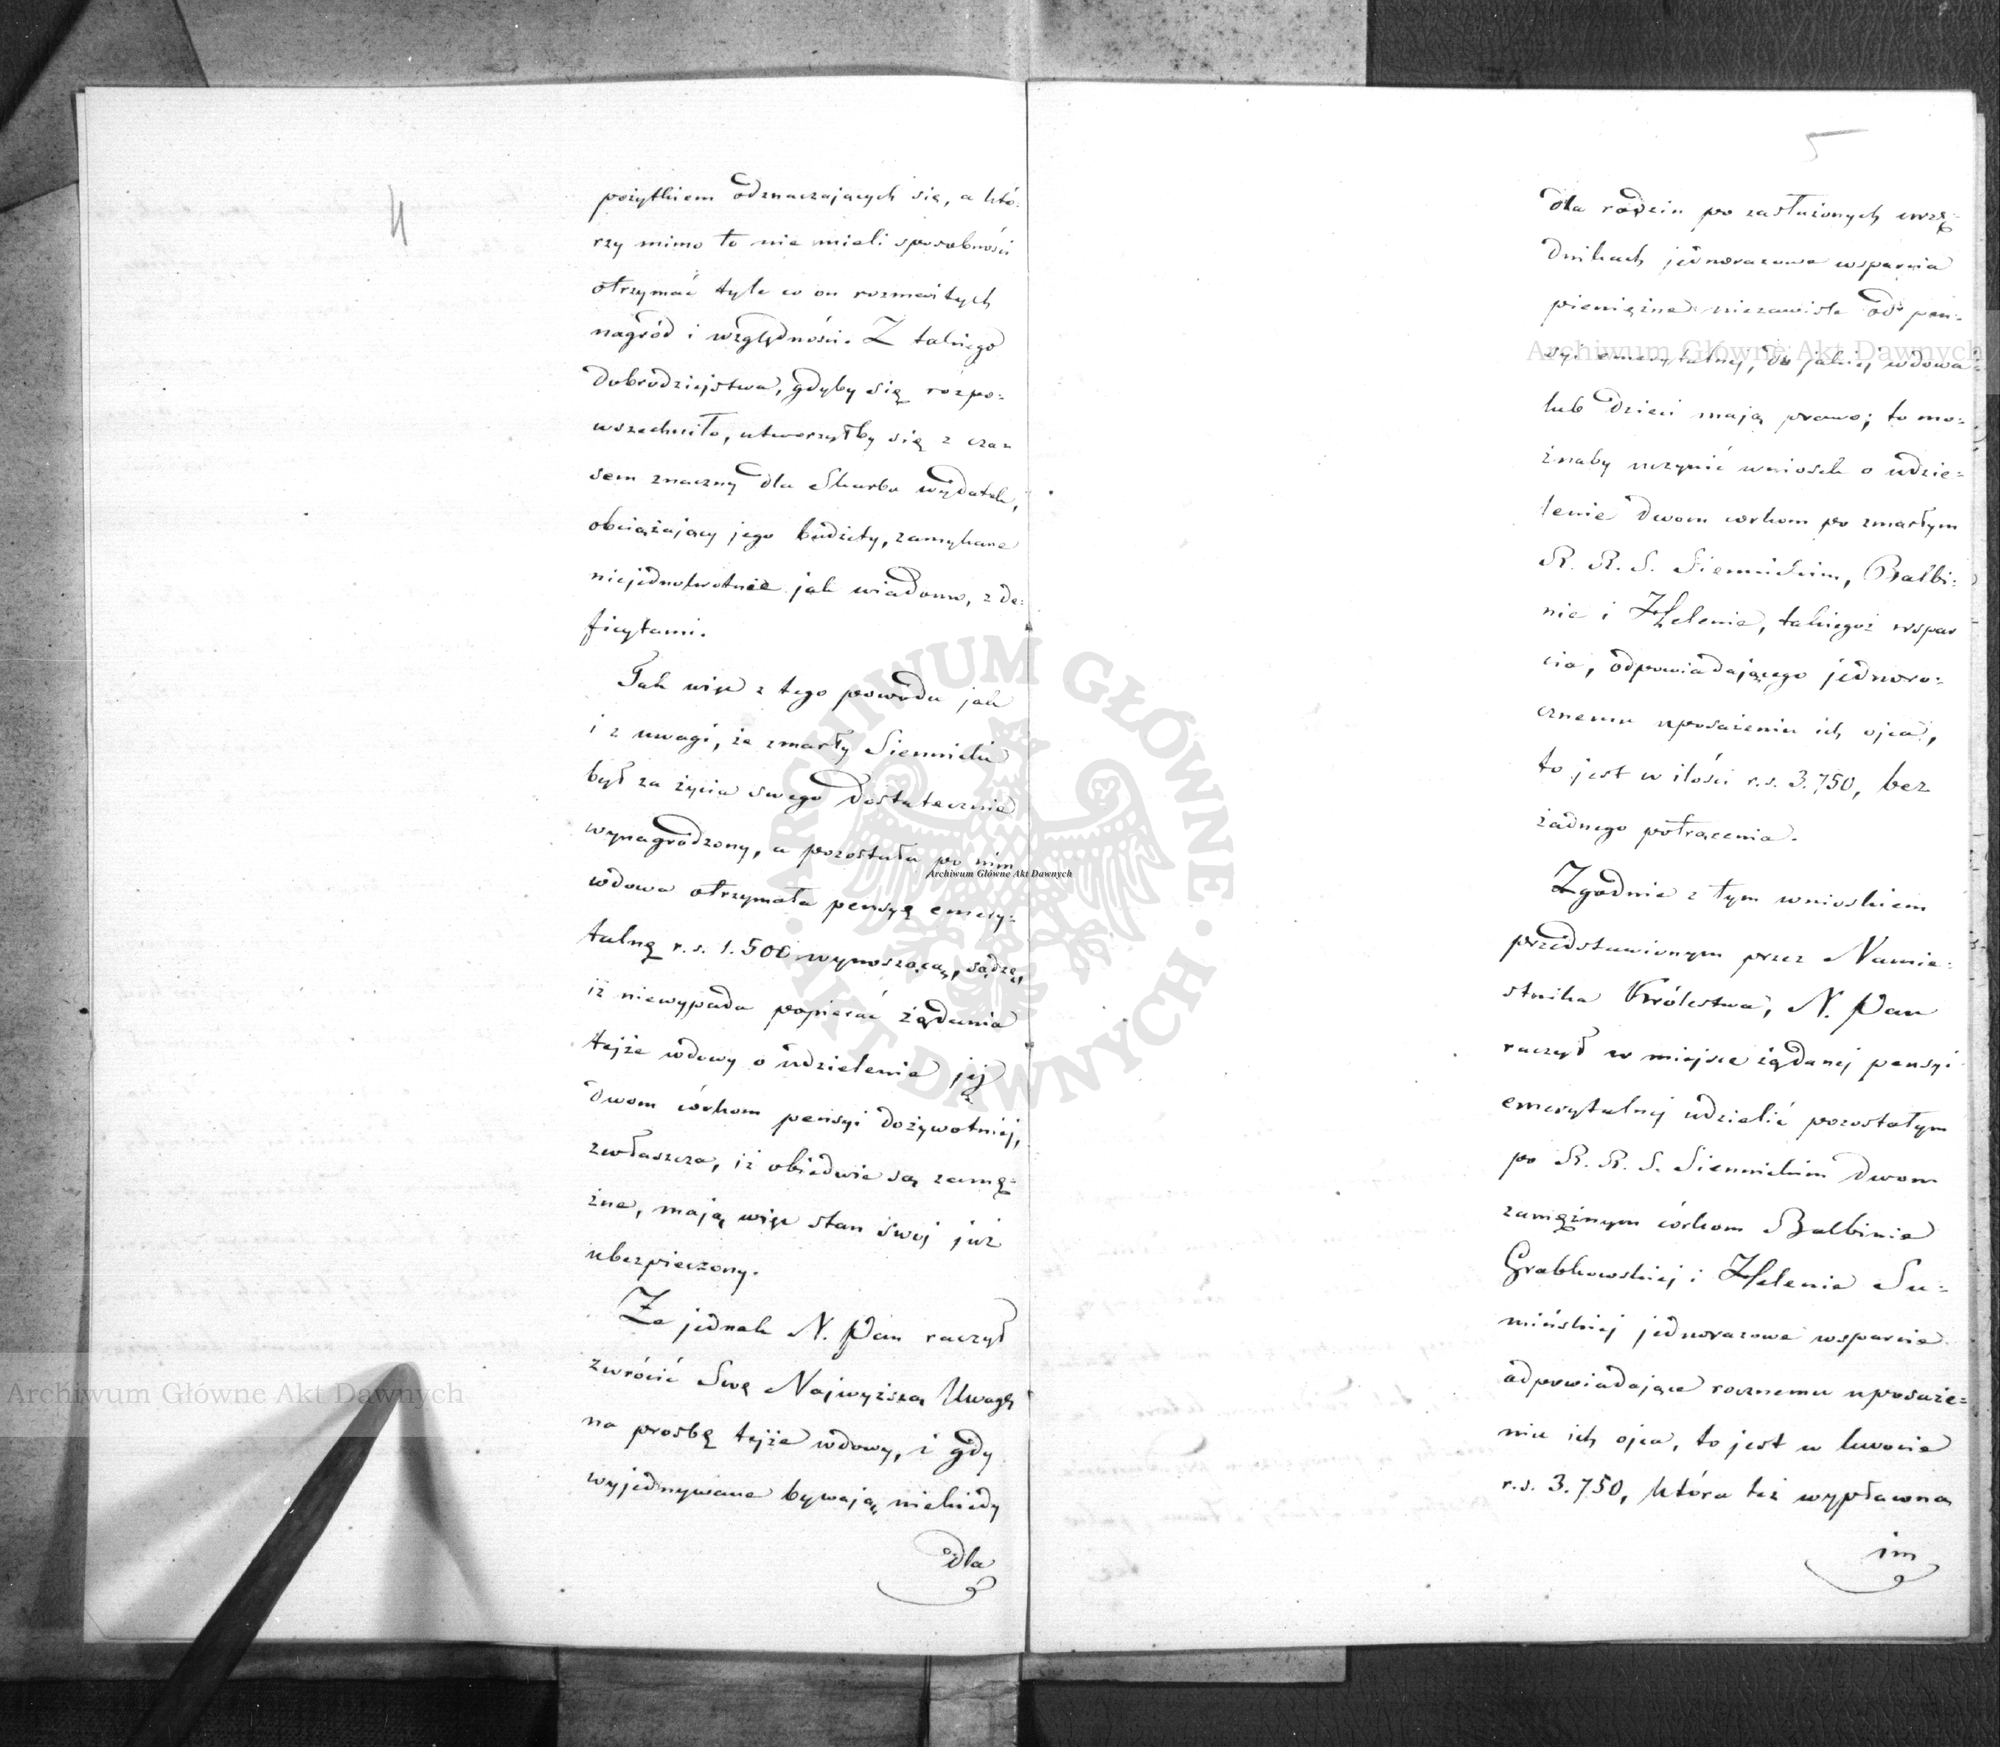 4
pożytkiem odznaczających się, a któ-
rzy mimo to nie mieli sposobności
otrzymać tyle co on rozmaitych
nagród i względności. Z takiego
dobrodziejstwa, gdyby się rozpo-
wszechniło, utworzyłby się z cza-
sem znaczny dla Skarbu wydatek,
obciążający jego budżety, zamykane
niejednokrotnie jak wiadomo, z de-
ficytami.
Tak więc z tego powodu jak
i z uwagi, że zmarły Siennicki
był za życia swego dostatecznie
wynagrodzony, a pozostała po nim
wdowa otrzymała pensyę emery-
talną r.s. 1.500 wynoszącą, sądzę,
iż niewypada popierać żądania
tejże wdowy o udzielenie jej
dwom córkom pensyi dożywotniej,
zwłaszcza, iż obiedwie są zamę-
żne, mają więc stan swój już
ubezpieczony.
Że jednak N. Pan raczył
zwrócić Swę Najwyższą Uwagę
na prośbę tejże wdowy, i gdy
wyjednywane bywają niekiedy
dla
5
dla rodzin po zasłużonych urzę-
dnikach jednorazowe wsparcia
pieniężne niezawisłe od pen-
syi emerytalnej, do jakiej wdowa
lub dzieci mają prawo; to mo-
żnaby uczynić wniosek o udzie-
lenie dwom córkom po zmarłym
R. R. S. Siennickim, Balbi-
nie i Helenie, takiegoż wspar
cia, odpowiadającego jednoro-
cznemu uposażeniu ich ojca,
to jest w ilości r.s. 3.750, bez
żadnego potrącenia.
Zgodnie z tym wnioskiem
przedstawionym przez Namie-
stnika Królestwa, N. Pan
raczył w miejsce żądanej pensyi
emerytalnej udzielić pozostałym
po R. R. S. Siennickim dwom
zamężnym córkom Balbinie
Grabkowskiej i Helenie Su-
mińskiej jednorazowe wsparcie
odpowiadające rocznemu uposaże-
niu ich ojca, to jest w kwocie
r.s. 3.750, która też wypłaconą
im
Archiwum Główne Akt Dawnych
Archiwum Główne Akt Dawnych
Archiwum Główne Akt Dawnych
ARCHIWUM GŁÓWNE
AKT DAWNYCH